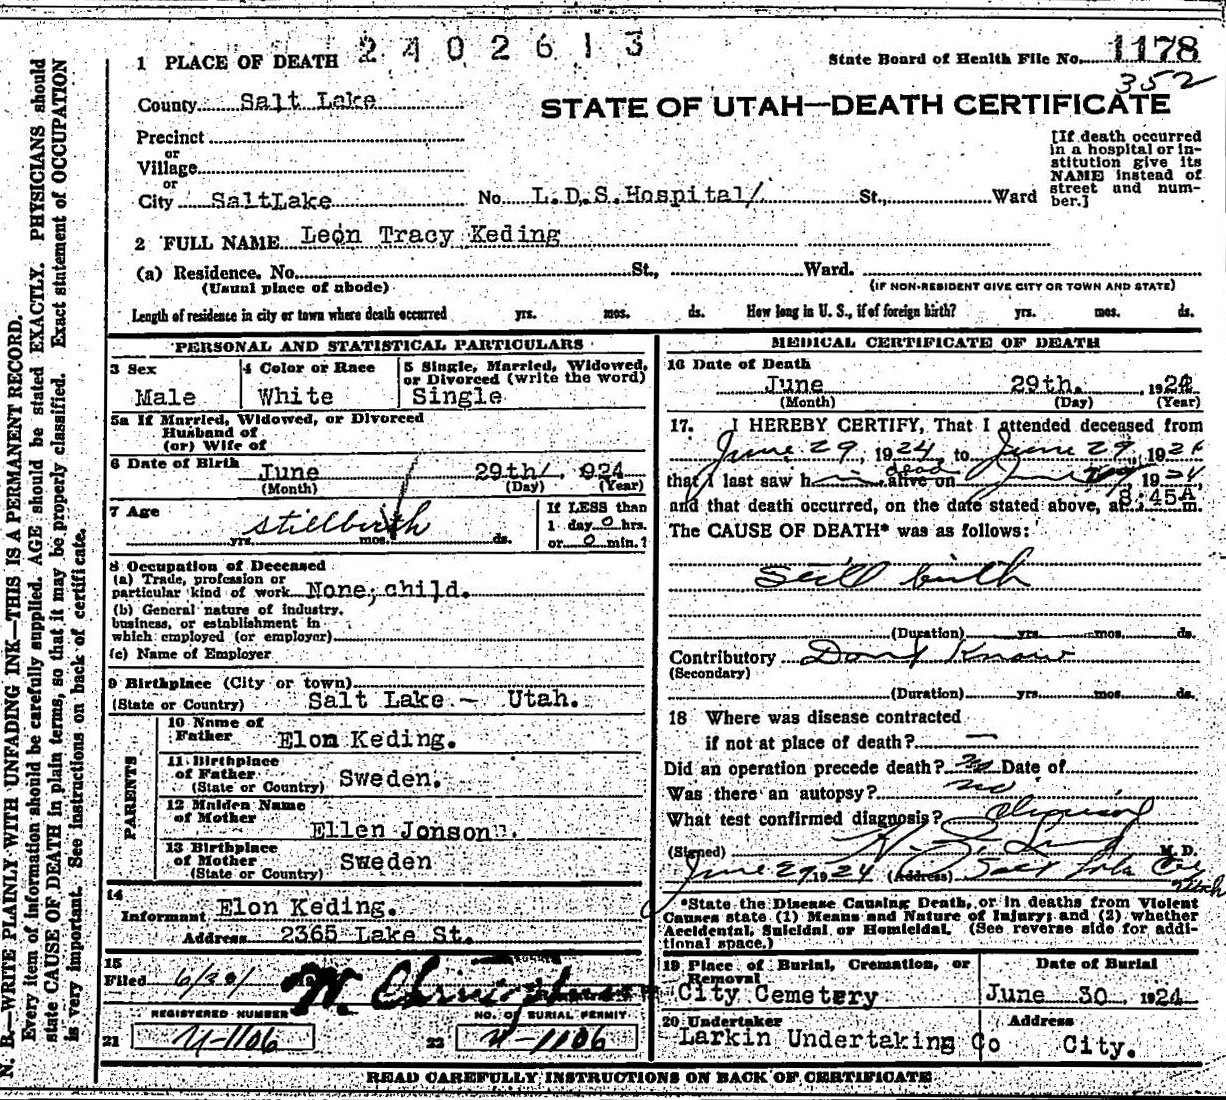 2402613
1 PLACE OF DEATH
State Board of Health File No. 1178
352
County Salt Lake
STATE OF UTAH—DEATH CERTIFICATE
Precinct
or
Village
or
City SaltLake No. L.D.S.Hospital/ St., Ward
[If death occurred
in a hospital or in-
stitution give its
NAME instead of
street and num-
ber.]
2 FULL NAME Leon Tracy Keding
(a) Residence. No. St., Ward.
(Usual place of abode) (IF NON-RESIDENT GIVE CITY OR TOWN AND STATE)
Length of residence in city or town where death occurred yrs. mos. ds. How long in U. S., if of foreign birth? yrs. mos. ds.
PERSONAL AND STATISTICAL PARTICULARS
3 Sex
Male
4 Color or Race
White
5 Single, Married, Widowed,
or Divorced (write the word)
Single
5a If Married, Widowed, or Divorced
Husband of
(or) Wife of
6 Date of Birth June 29th/, 924
(Month) (Day) (Year)
7 Age
stillbirth
yrs. mos. ds.
If LESS than
1 day 0 hrs.
or 0 min.?
8 Occupation of Deceased
(a) Trade, profession or
particular kind of work None, child.
(b) General nature of industry,
business, or establishment in
which employed (or employer)
(c) Name of Employer
9 Birthplace (City or town)
(State or Country) Salt Lake - Utah.
PARENTS
10 Name of
Father Elon Keding.
11 Birthplace
of Father Sweden.
(State or Country)
12 Maiden Name
of Mother
Ellen Jonson.
13 Birthplace
of Mother Sweden
(State or Country)
14
Informant Elon Keding.
Address 2365 Lake St.
15
Filed 6/30/
REGISTERED NUMBER
21 M-1106
NO. OF BURIAL PERMIT
22 M-1106
MEDICAL CERTIFICATE OF DEATH
16 Date of Death
June 29th. 1924
(Month) (Day) (Year)
17. I HEREBY CERTIFY, That I attended deceased from
June 29, 1924, to June 29, 192
dead
that I last saw h alive on June 1924,
and that death occurred, on the date stated above, at 8:45A m.
The CAUSE OF DEATH* was as follows:
Still birth
(Duration) yrs. mos. ds.
Contributory Dont Know
(Secondary)
(Duration) yrs. mos. ds.
18 Where was disease contracted
if not at place of death? —
Did an operation precede death? no Date of
Was there an autopsy? no
What test confirmed diagnosis?
(Signed) M. D.
June 29, 1924 (Address) Salt Lake City
Utah
*State the Disease Causing Death, or in deaths from Violent
Causes state (1) Means and Nature of Injury; and (2) whether
Accidental, Suicidal or Homicidal. (See reverse side for addi-
tional space.)
19 Place of Burial, Cremation, or
Removal
City Cemetery
Date of Burial
June 30, 1924
20 Undertaker
Larkin Undertaking Co
Address
City.
READ CAREFULLY INSTRUCTIONS ON BACK OF CERTIFICATE
N. B.—WRITE PLAINLY WITH UNFADING INK—THIS IS A PERMANENT RECORD.
Every item of information should be carefully supplied. AGE should be stated EXACTLY. PHYSICIANS should
state CAUSE OF DEATH in plain terms, so that it may be properly classified. Exact statement of OCCUPATION
is very important. See instructions on back of certificate.